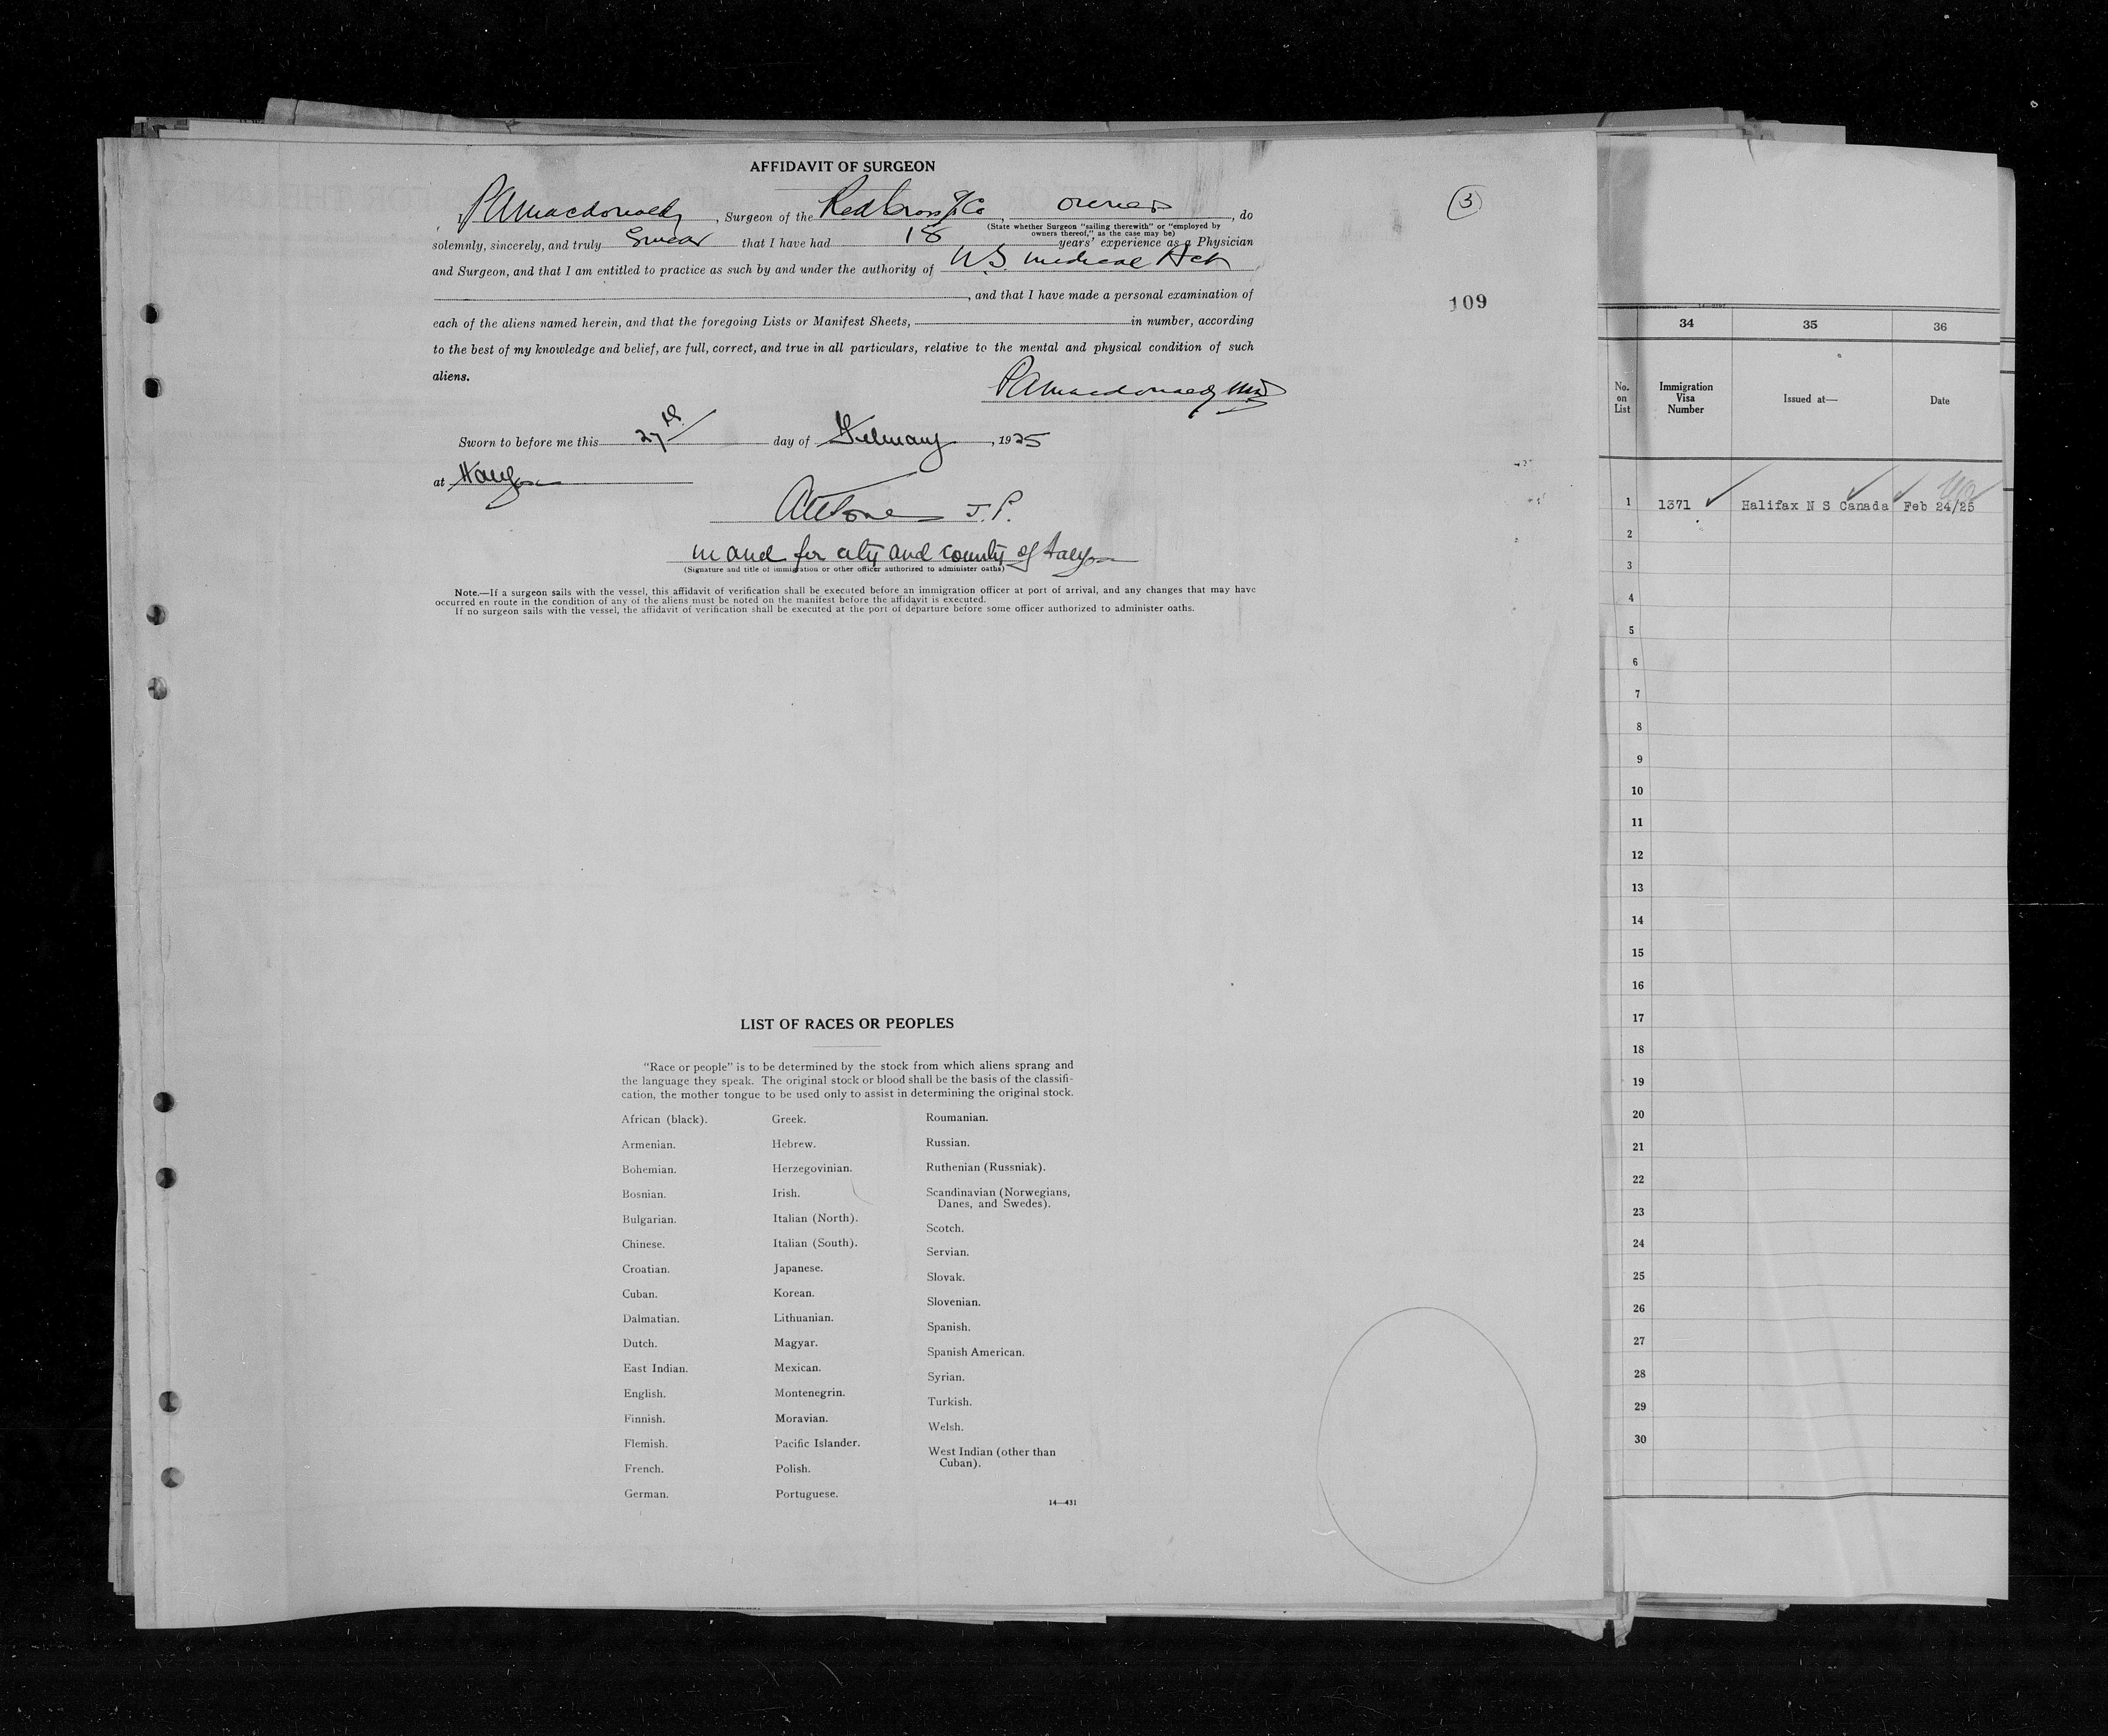 AFFIDAVIT OF SURGEON
I, P A Macdonald, Surgeon of the Red Cross SS Co, owners, do
(State whether Surgeon "sailing therewith" or "employed by
owners thereof," as the case may be)
solemnly, sincerely, and truly swear that I have had 18 years' experience as a Physician
and Surgeon, and that I am entitled to practice as such by and under the authority of N.S. Medical Act
, and that I have made a personal examination of
each of the aliens named herein, and that the foregoing Lists or Manifest Sheets, in number, according
to the best of my knowledge and belief, are full, correct, and true in all particulars, relative to the mental and physical condition of such
aliens.
P A Macdonald MD
Sworn to before me this 27th day of February, 1925
at Halifax
J.P.
in and for city and county of Halifax
(Signature and title of immigration or other officer authorized to administer oaths)
Note.—If a surgeon sails with the vessel, this affidavit of verification shall be executed before an immigration officer at port of arrival, and any changes that may have
occurred en route in the condition of any of the aliens must be noted on the manifest before the affidavit is executed.
If no surgeon sails with the vessel, the affidavit of verification shall be executed at the port of departure before some officer authorized to administer oaths.
3
109
LIST OF RACES OR PEOPLES
"Race or people" is to be determined by the stock from which aliens sprang and
the language they speak. The original stock or blood shall be the basis of the classifi-
cation, the mother tongue to be used only to assist in determining the original stock.
African (black).
Armenian.
Bohemian.
Bosnian.
Bulgarian.
Chinese.
Croatian.
Cuban.
Dalmatian.
Dutch.
East Indian.
English.
Finnish.
Flemish.
French.
German.
Greek.
Hebrew.
Herzegovinian.
Irish.
Italian (North).
Italian (South).
Japanese.
Korean.
Lithuanian.
Magyar.
Mexican.
Montenegrin.
Moravian.
Pacific Islander.
Polish.
Portuguese.
Roumanian.
Russian.
Ruthenian (Russniak).
Scandinavian (Norwegians,
Danes, and Swedes).
Scotch.
Servian.
Slovak.
Slovenian.
Spanish.
Spanish American.
Syrian.
Turkish.
Welsh.
West Indian (other than
Cuban).
14—431
34 35 36
No.
on
List
Immigration
Visa
Number
Issued at—
Date
1 1371 Halifax N S Canada Feb 24/25
2
3
4
5
6
7
8
9
10
11
12
13
14
15
16
17
18
19
20
21
22
23
24
25
26
27
28
29
30